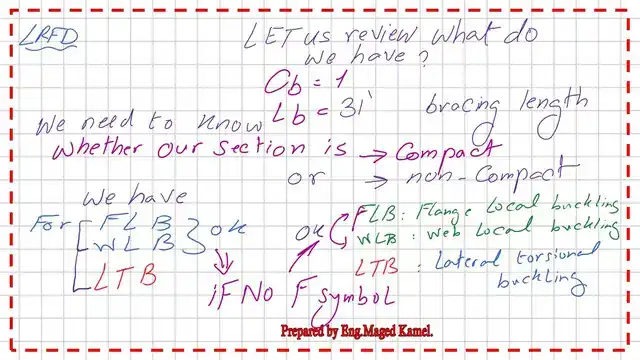 LRFD
LET us review what do
we have?
Cb = 1
Lb = 31' bracing length
We need to know
whether our section is → Compact
or → non-Compact
We have
For FLB
WLB
ok
LTB
iF No F symbol
ok
FLB: Flange Local buckling
WLB: Web Local buckling
LTB: Lateral torsional
buckling
Prepared by Eng.Maged Kamel.